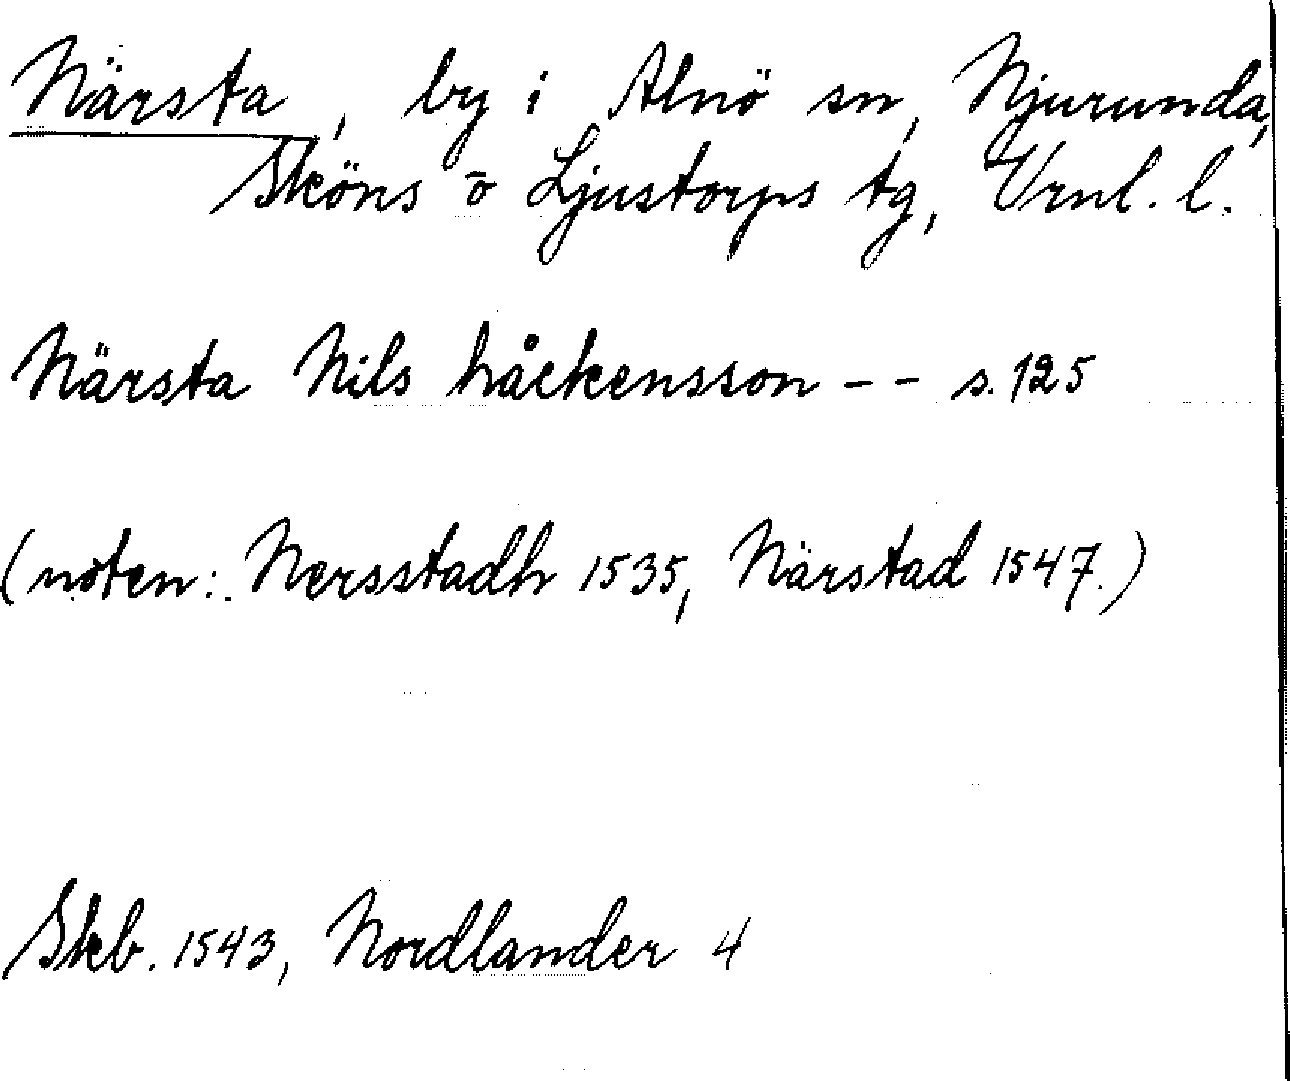 Närsta, by i Alnö sn, Njurunda,
Sköns o Ljustorps tg, Vrnl. l.
Närsta Nils håckensson - - s. 125
(noten: Nersstadh 1535, Närstad 1547.)
Skb. 1543, Nordlander 4